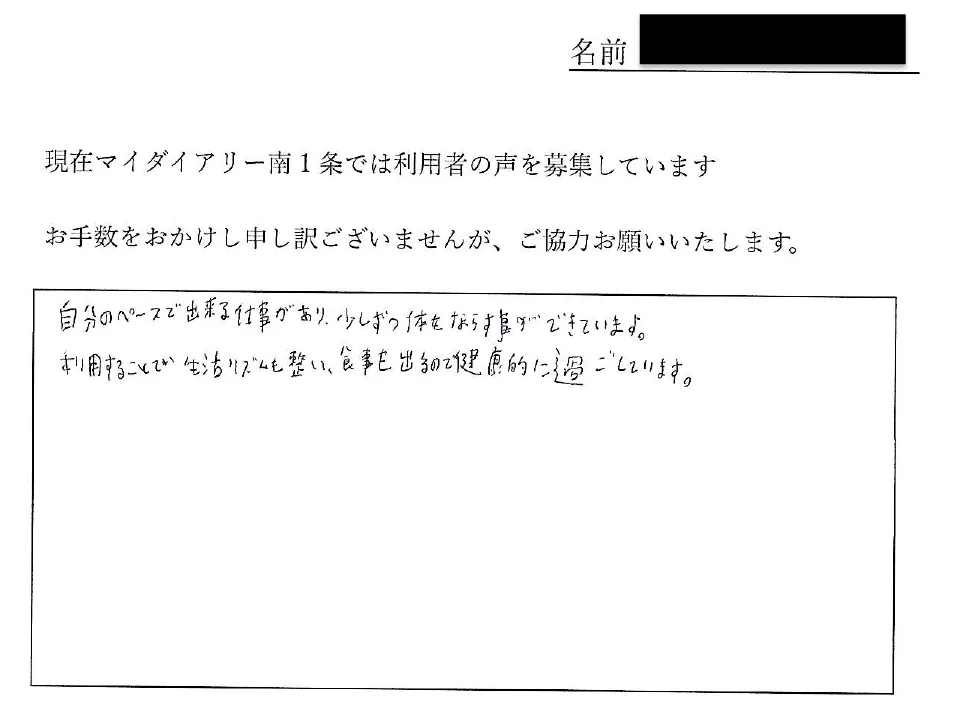 名前
現在マイダイアリー南1条では利用者の声を募集しています
お手数をおかけし申し訳ございませんが、ご協力お願いいたします。
自分のペースで出来る仕事があり、少しずつ体をならす事ができています。
利用することで生活リズムも整い、食事も出るので健康的に過ごしています。